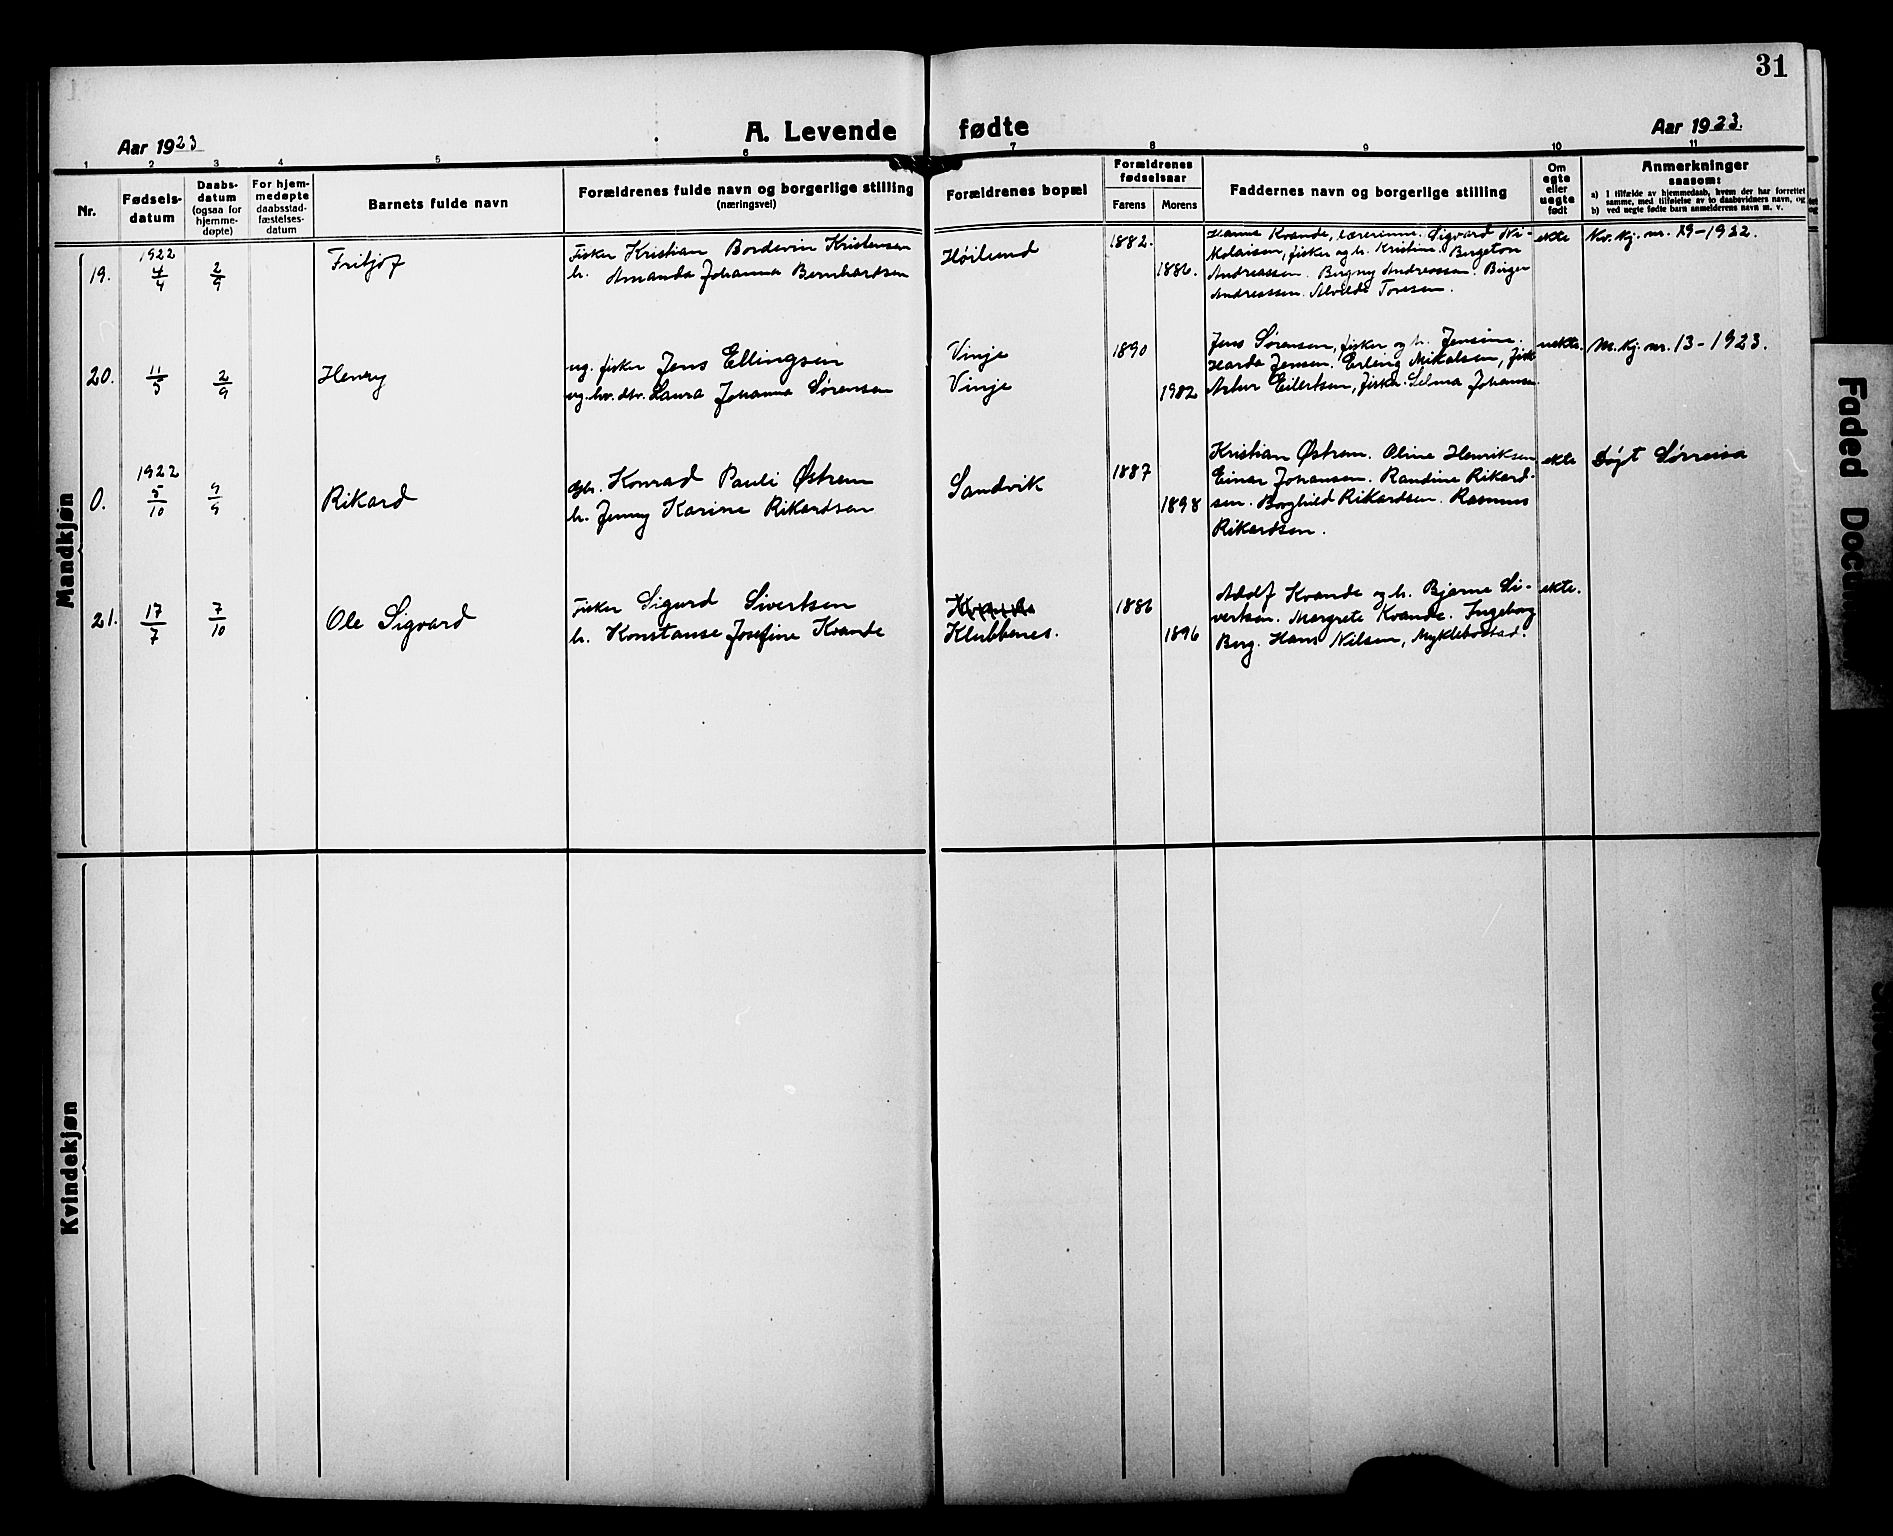 31
Aar 1923
A. Levende fødte
Aar 1923.
1 2 3 4 5 6 7 8 9 10 11
Nr.
Fødsels-
datum
Daabs-
datum
(ogsaa for
hjemme-
døpte)
For hjem-
medøpte
daabsstad-
fæstelses-
datum
Barnets fulde navn
Forældrenes fulde navn og borgerlige stilling
(næringsvei)
Forældrenes bopæl
Forældrenes
fødselsaar
Farens Morens
Faddernes navn og borgerlige stilling
Om
egte
eller
uegte
født
Anmerkninger
saasom:
a) I tilfælde av hjemmedaab, hvem der har forrettet
samme, med tilføielse av to daabsvidners navn, og
b) ved uegte fødte barn anmelderens navn m. v.
Mandkjøn
19.
1922
4/4
2/9
Fritjof
Fisker Kristian Bordevin Kristensen
h. Amanda Johanna Bernhardsen
Høilund
1882.
1886.
Hanna Kvande, lærerinne. Sigvard Ni-
kolaisen, fisker og h. Kristine. Bergeton
Andreassen. Bergny Andreassen. Birger
Andreassen. Alvilde Toresen.
ekte
Kv.kj. nr. 19-1922.
20.
11/5
2/9
Henry
ug. fisker Jens Ellingsen
ug. hv. dtr. Laura Johanna Sørensen
Vinje
Vinje
1890
1982
Jens Sørensen, fisker og h. Jensine.
Harda Jensen. Erling Mikalsen, fisk
Artur Eilertsen, fisker. Selma Johansen.
uekte.
M.kj. nr. 13-1923.
0.
1922
5/10
9/9
Rikard
gbr. Konrad Pauli Østrem
h. Jenny Karine Rikardsen
Sandvik
1887
1898
Kristian Østrem. Oline Henriksen
Einar Johansen. Randine Rikard-
sen. Borghild Rikardsen. Rasmus
Rikardsen.
ekte
Døpt Sørreisa
21.
17/7
7/10
Ole Sigvard
Fisker Sigurd Sivertsen
h. Konstanse Josefine Kvande
Klubbenes.
1886
1896
Adolf Kvande og h. Bjarne Si-
vertsen. Margrete Kvande. Ingeborg
Berg. Hans Nilsen, Myklebostad.
ekte.
Kvindekjøn
Faded Docu